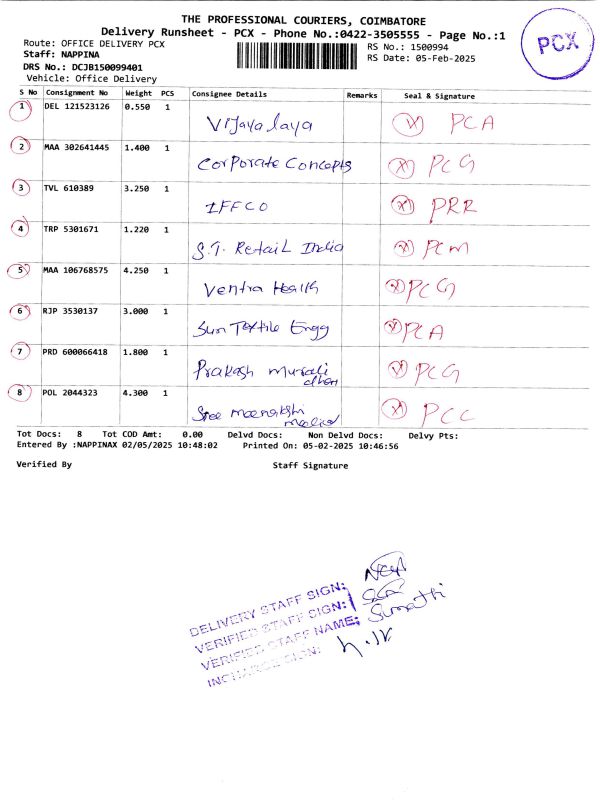 THE PROFESSIONAL COURIERS, COIMBATORE
Delivery Runsheet - PCX - Phone No.:0422-3505555 - Page No.:1
PCX
Route: OFFICE DELIVERY PCX
RS No.: 1500994
Staff: NAPPINA
RS Date: 05-Feb-2025
DRS No.: DCJB150099401
Vehicle: Office Delivery
S No Consignment No Weight PCS Consignee Details Remarks Seal & Signature
1 DEL 121523126 0.550 1 Vijayalaya PCA
2 MAA 302641445 1.400 1 Corporate Concepts PCG
3 TVL 610389 3.250 1 IFFCO PRR
4 TRP 5301671 1.220 1 S.T. Retail India PCM
5 MAA 106768575 4.250 1 Ventra Health PCG
6 RJP 3530137 3.000 1 Sun Textile Engg PCA
7 PRD 600066418 1.800 1 Prakash Murali PCG
8 POL 2044323 4.300 1 Sree Meenakshi PCC
Tot Docs: 8 Tot COD Amt: 0.00 Delvd Docs: Non Delvd Docs: Delvy Pts:
Entered By :NAPPINAX 02/05/2025 10:48:02 Printed On: 05-02-2025 10:46:56
Verified By Staff Signature
DELIVERY STAFF SIGN:
VERIFIED STAFF SIGN:
VERIFIED STAFF NAME: Sumathi
INCHARGE SIGN: